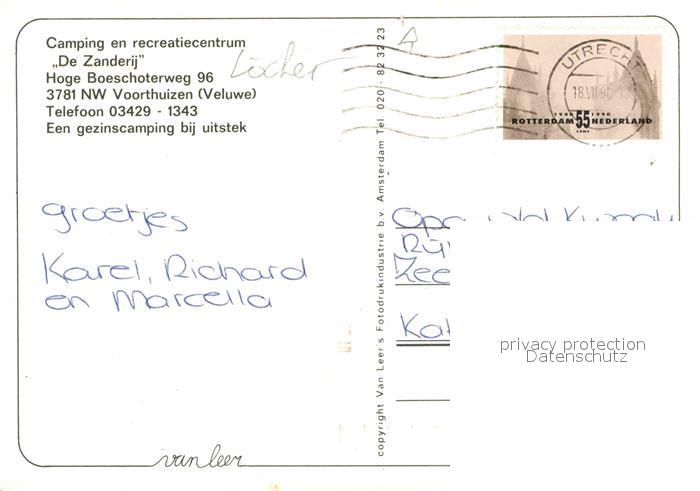 Camping en recreatiecentrum
„De Zanderij”
Hoge Boeschoterweg 96
3781 NW Voorthuizen (Veluwe)
Telefoon 03429 - 1343
Een gezinscamping bij uitstek
Löcher
groetjes
Karel, Richard
en Marcella
van leer
copyright Van Leer's Fotodrukindustrie b.v. Amsterdam Tel. 020 - 82 32 23
UTRECHT
18.VII.90
1940 1990
ROTTERDAM 55 NEDERLAND
CENT
Opa
Zee
privacy protection
Datenschutz